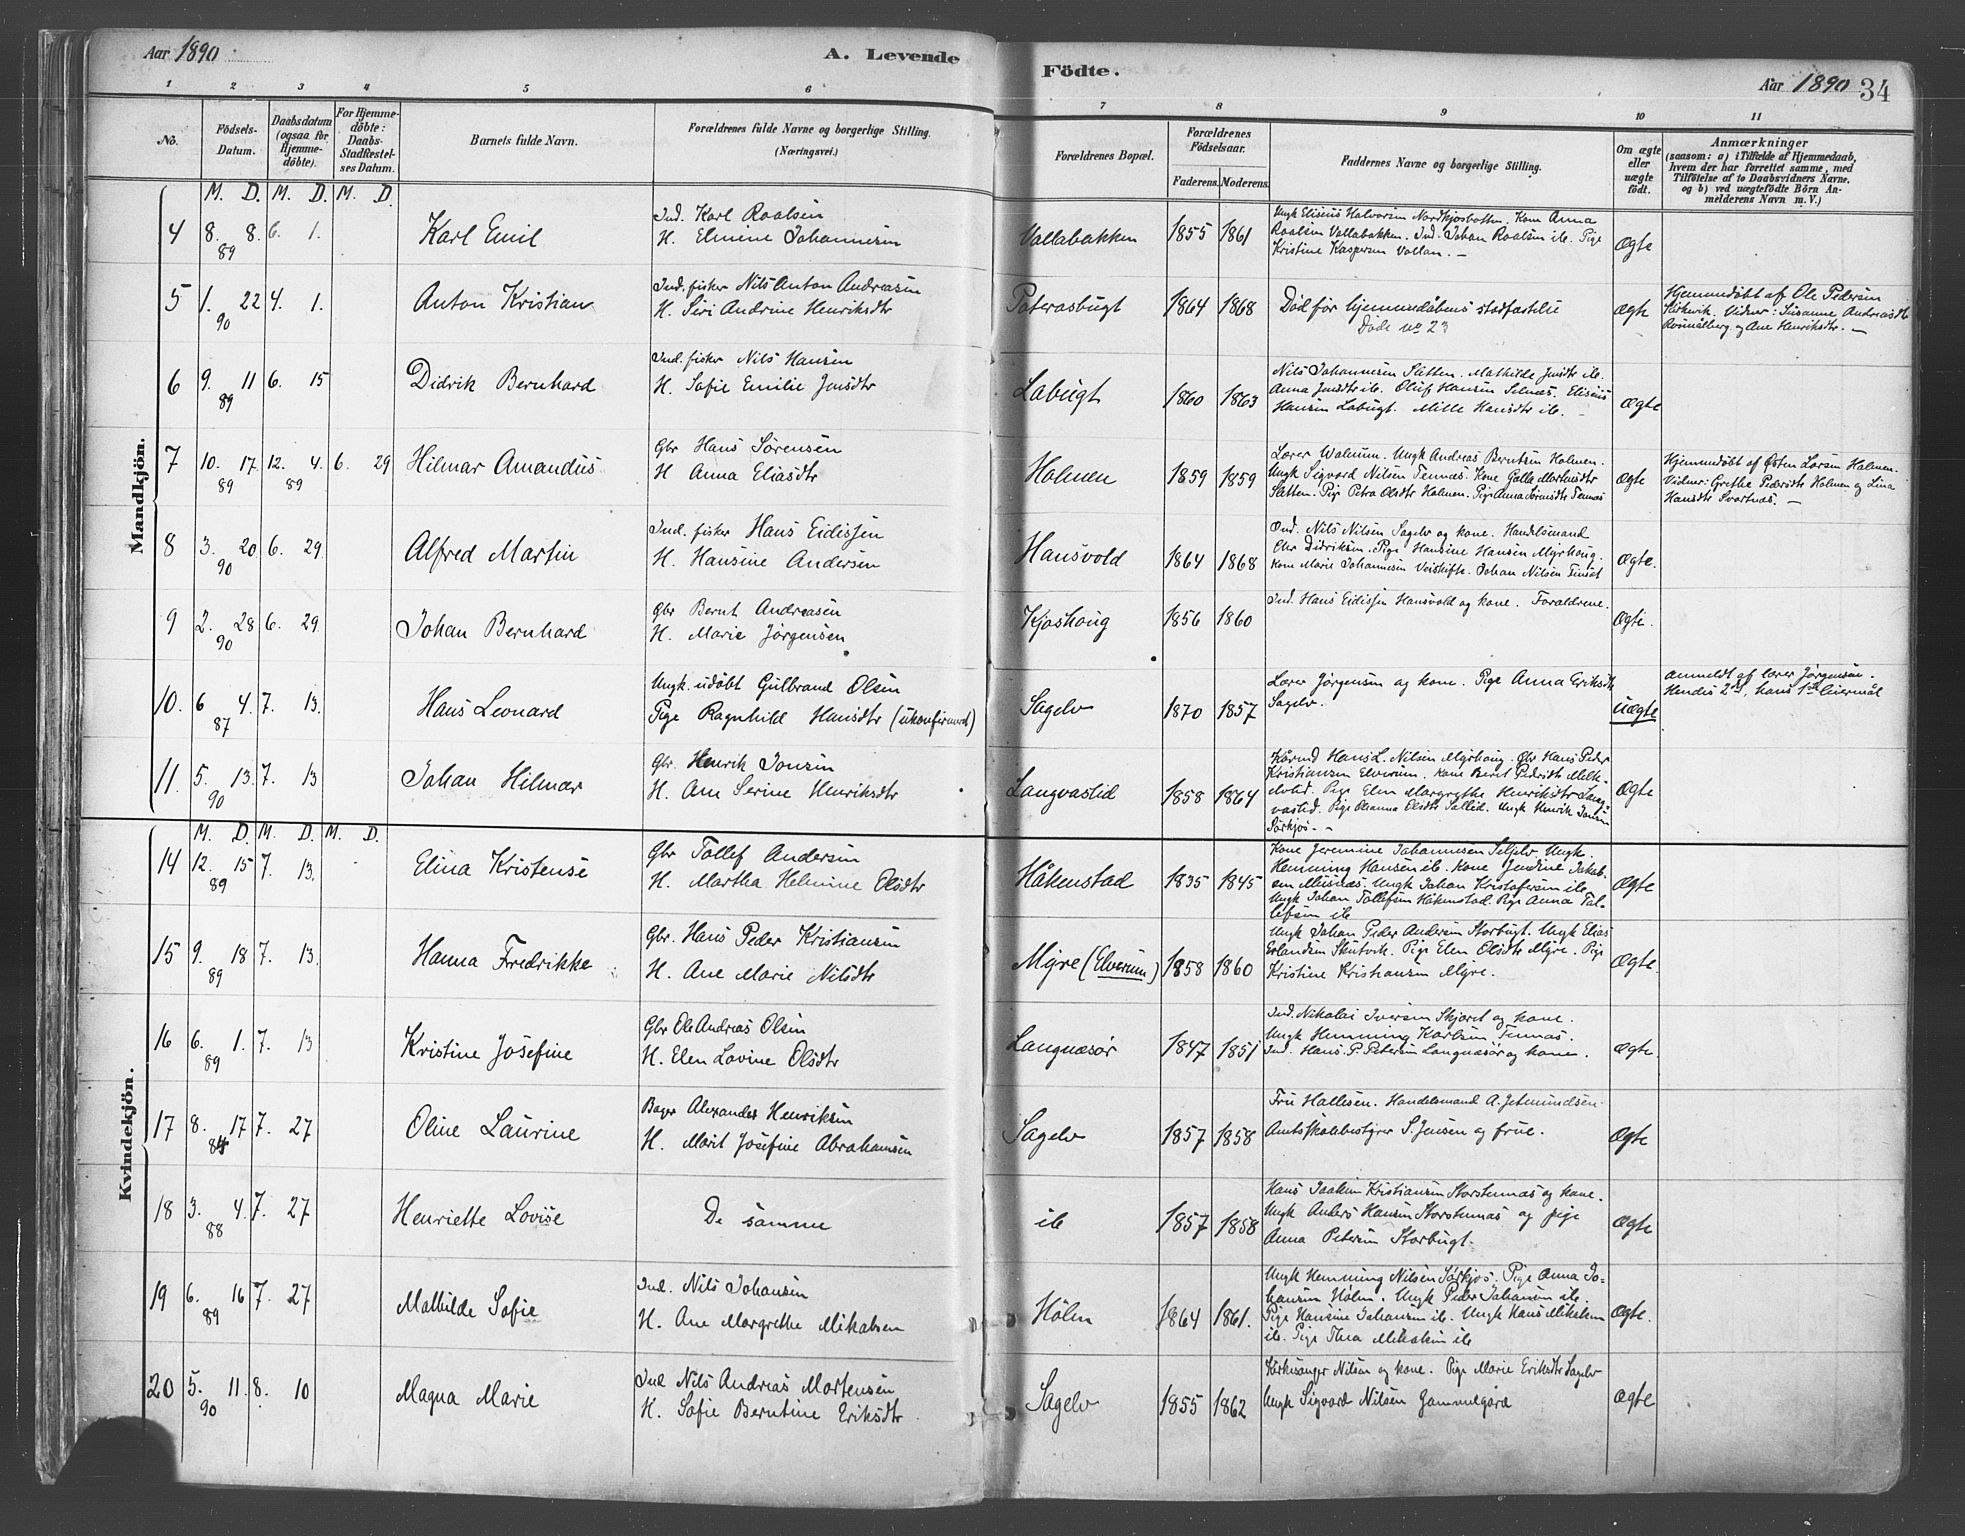 Aar 1890
A. Levende
Födte.
Aar 1890 34
1 2 3 4 5 6 7 8 9 10 11
No.
Födsels-Datum.
Daabsdatum (ogsaa for Hjemmedöbte).
For Hjemmedöbte: Daabs-Stadfæstelses Datum.
Barnets fulde Navn.
Forældrenes fulde Navne og borgerlige Stilling. (Næringsvei.)
Forældrenes Bopæl.
Forældrenes Födselsaar.
Faderens. Moderens.
Faddernes Navne og borgerlige Stilling.
Om ægte eller uægte födt.
Anmærkninger
(saasom: a) i Tilfælde af Hjemmedaab,
hvem der har forrettet samme, med
Tilföielse af to Daabsvidners Navne,
og b) ved uægtefödte Börn Anmelderens Navn m. V.)
Mandkjön.
M. D. M. D. M. D.
4 8. 8. 89 6. 1. Karl Emil
Ind. Karl Roalsen
H. Elmine Johannesen
Vallabakken 1855 1861
Ungk Eliseus Halvorsen Nordkjosbotten. Kone Anna
Roalsen Vallabakken. Ind. Johan Roalsen ib. Pige
Kristine Kaspersen Vollan. —
Ægte
5 1. 22 90 4. 1. Anton Kristian
Ind. fisker Nils Anton Andreasen
H. Seri Andrine Henriksdtr
Paterasbugt 1864 1868
Död för hjemmedåbens stadfæstelse
Döde no 23
Ægte
Hjemmedöbt af Ole Pedersen
Vidner: Susanne Andreasdtr
og Ane Henriksdtr. —
6 9. 11 89 6. 15 Didrik Bernhard
Ind. fisker Nils Hansen
H. Sofie Emilie Jensdtr
Labugt 1860 1863
Nils Johannesen Sletten. Mathilde Jensdtr ib.
Anna Jensdtr ib. Oluf Hansen Selnæs. Eliseus
Hansen Labugt. Mille Hansdtr ib. —
Ægte
7 10. 17 89 12. 4. 89 6. 29 Hilmar Amandus
Gbr Hans Sørensen
H Anna Eliasdtr
Holmen 1859 1859
Lærer Walnum. Ungk Andreas Berntsen Holmen.
Ungk Sigvard Nilsen Tennæs. Kone Galla Mortensdtr
Sletten. Pige Petra Olsdtr Holmen. Pige Anna Sörensdtr Tennæs
Ægte
Hjemmedöbt af Östen Larsen Holmen.
Vidner: Grethe Pedersdtr Holmen og Lina
Hansdtr Svartnæs. —
8 3. 20 90 6. 29. Alfred Martin
Ind. fisker Hans Eidissen
H. Hansine Andersen
Hansvold 1864 1868
Ind. Nils Nilsen Sagelv og kone. Handelsmand
Chr Didriksen. Pige Hansine Hansen Myrhoug.
Kone Marie Johannesen Veiskifte. Johan Nilsen
Ægte.
9 2. 28 90 6. 29 Johan Bernhard
Gbr Bernt Andreasen
H. Marie Jørgensen
Kjoshoug 1856 1860
Ind. Hans Eidissen Hansvold og kone. Forældrene.
Ægte.
10. 6 4. 87 7. 13. Hans Leonard
Ungk. udöbt Gulbrand Olsen
Pige Ragnhild Hansdtr (ukonfirmeret)
Sagelv 1870 1857
Lærer Jørgensen og kone. Pige Anna Eriksdtr
Sagelv.
Uægte
Anmeldt af lærer Jørgensen.
Hendes 2det, hans 1ste leiermål
11. 5. 13. 90 7. 13 Johan Hilmar
Gbr. Henrik Jonsen
H. Ane Serine Henriksdtr
Langvastid 1858 1864
Hans L. Nilsen Myrhoug. Gbr Hans Peder
Kristiansen Elverum. Kone Beret Pedersdtr
Pige Elen Margrethe Henriksdtr Langvastid.
Pige Olsdtr Ungk Henrik Jonsen
Sörkjos. —
Ægte
Kvindekjön.
M. D. M. D. M. D.
14 12. 15 89 7. 13. Elina Kristense
Gbr Tollef Andersen
H. Martha Helmine Olsdtr
Håkenstad 1835 1845
Kone Jeremine Johannesen Seljelv. Ungk.
Hemming Hansen ib. Kone Jendine Jakobsen
Ungk Johan Kristofersen ib.
Ungk Johan Tollefsen Håkenstad. Pige Anna Tollefsen ib
Ægte
15 9. 18 89 7. 13. Hanna Fredrikke
Gbr. Hans Peder Kristiansen
H. Ane Marie Nilsdtr
Myre (Elverum) 1858 1860
Ungk Johan Peder Andersen Storbugt. Ungk Elias
Erlandsen Skutvik. Pige Elen Olsdtr Myre. Pige
Kristine Kristiansen Myre.
Ægte.
16 6. 1. 89 7. 13 Kristine Josefine
Gbr Ole Andreas Olsen
H. Elen Lovine Olsdtr
Langnæsör 1847 1851
Ind. Nikolai Iversen Skjæret og kone.
Ungk Hemming Karlsen Tennæs.
Ind. Hans P. Petersen Langnæsör og kone.
Ægte.
17 8. 17 84 7. 27 Oline Laurine
Bager Alexander Henriksen
H. Marit Josefine Abrahamsen
Sagelv 1857 1858
Fru Hallesen. Handelsmand A. Jetmundsen.
Amtsskolebestyrer S. Jensen og frue.
Ægte
18 3. 4. 88 7. 27 Henriette Lovise
De samme
ib 1857 1858
Hans Joakim Kristiansen Storstennæs og kone.
Ungk Anders Hansen Storstennæs og pige
Anna Petersen Storbugt.
Ægte
19 6. 16 89 7. 27 Mathilde Sofie
Ind. Nils Johansen
H. Ane Margrethe Mikalsen
Hölen 1864 1861.
Ungk Hemming Nilsen Sörkjos. Pige Anna Johansen
Hölen. Ungk Peder Johansen ib.
Pige Hansine Johansen ib. Ungk Hans Mikalsen
ib. Pige Thea Mikalsen ib
Ægte.
20 5. 11. 90 8. 10 Magna Marie
Ind Nils Andreas Mortensen
H. Sofie Berntine Eriksdtr
Sagelv 1855 1862
Kirkesanger Nilsen og kone. Pige Marie Eriksdtr Sagelv
Ungk Sigvard Nilsen Gammelgård
Ægte